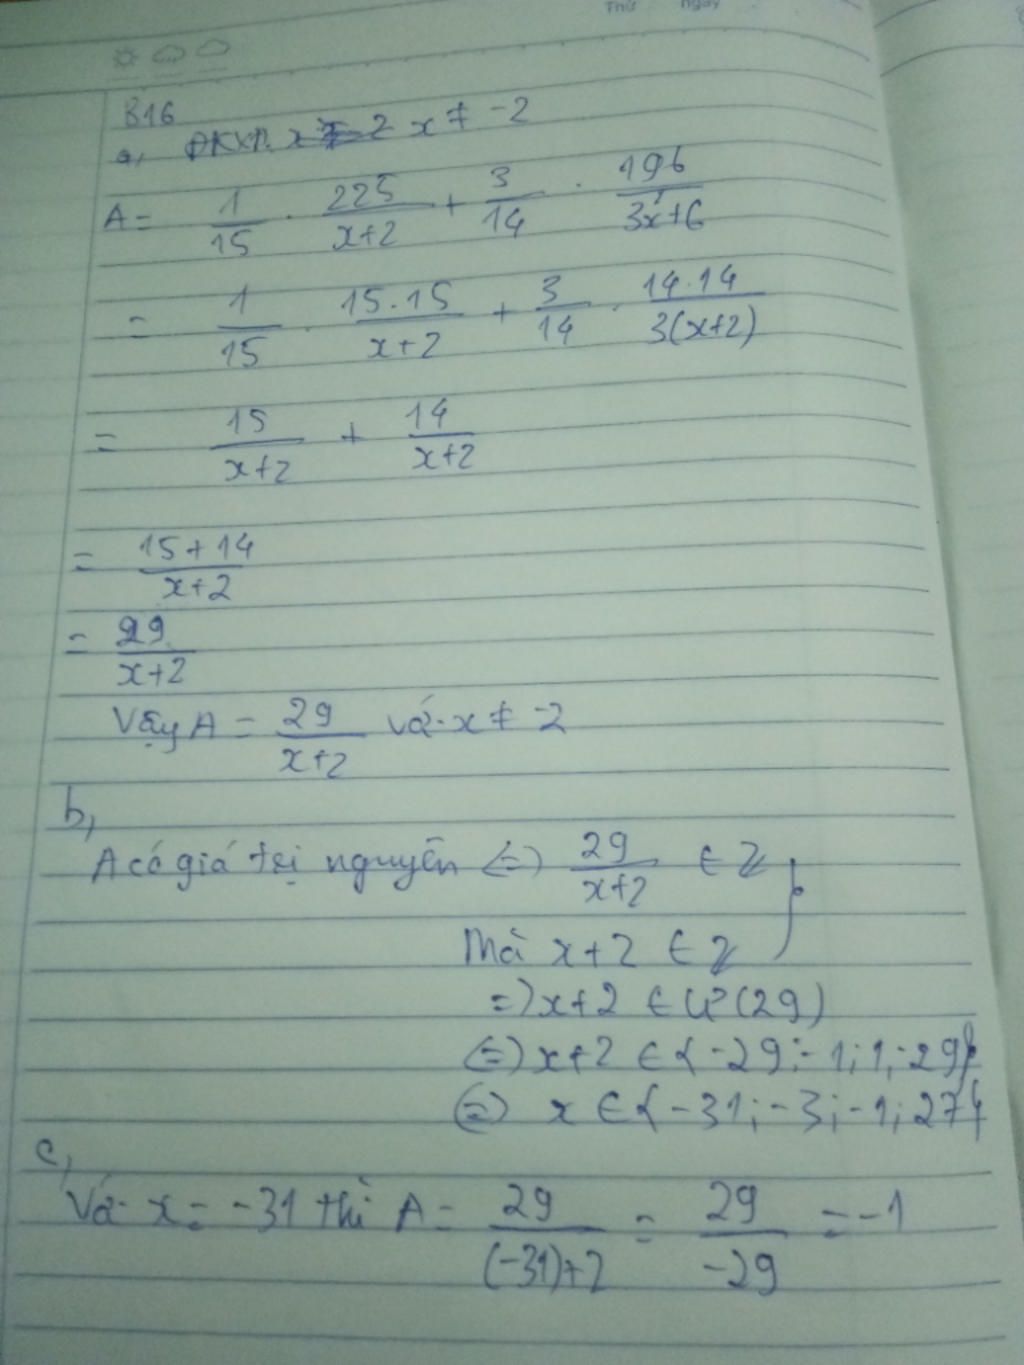 Thứ ngày
B16
a, ĐKXĐ. x ≠ -2
A = 1/15 . 225/x+2 + 3/14 . 196/3x+6
= 1/15 . 15.15/x+2 + 3/14 . 14.14/3(x+2)
= 15/x+2 + 14/x+2
= 15+14/x+2
= 29/x+2
Vậy A = 29/x+2 với x ≠ -2
b,
A có giá trị nguyên <=> 29/x+2 ∈ Z
Mà x+2 ∈ Z
=> x+2 ∈ Ư(29)
<=> x+2 ∈ {-29;-1;1;29}
<=> x ∈ {-31;-3;-1;27}
c,
Với x = -31 thì A = 29/(-31)+2 = 29/-29 = -1